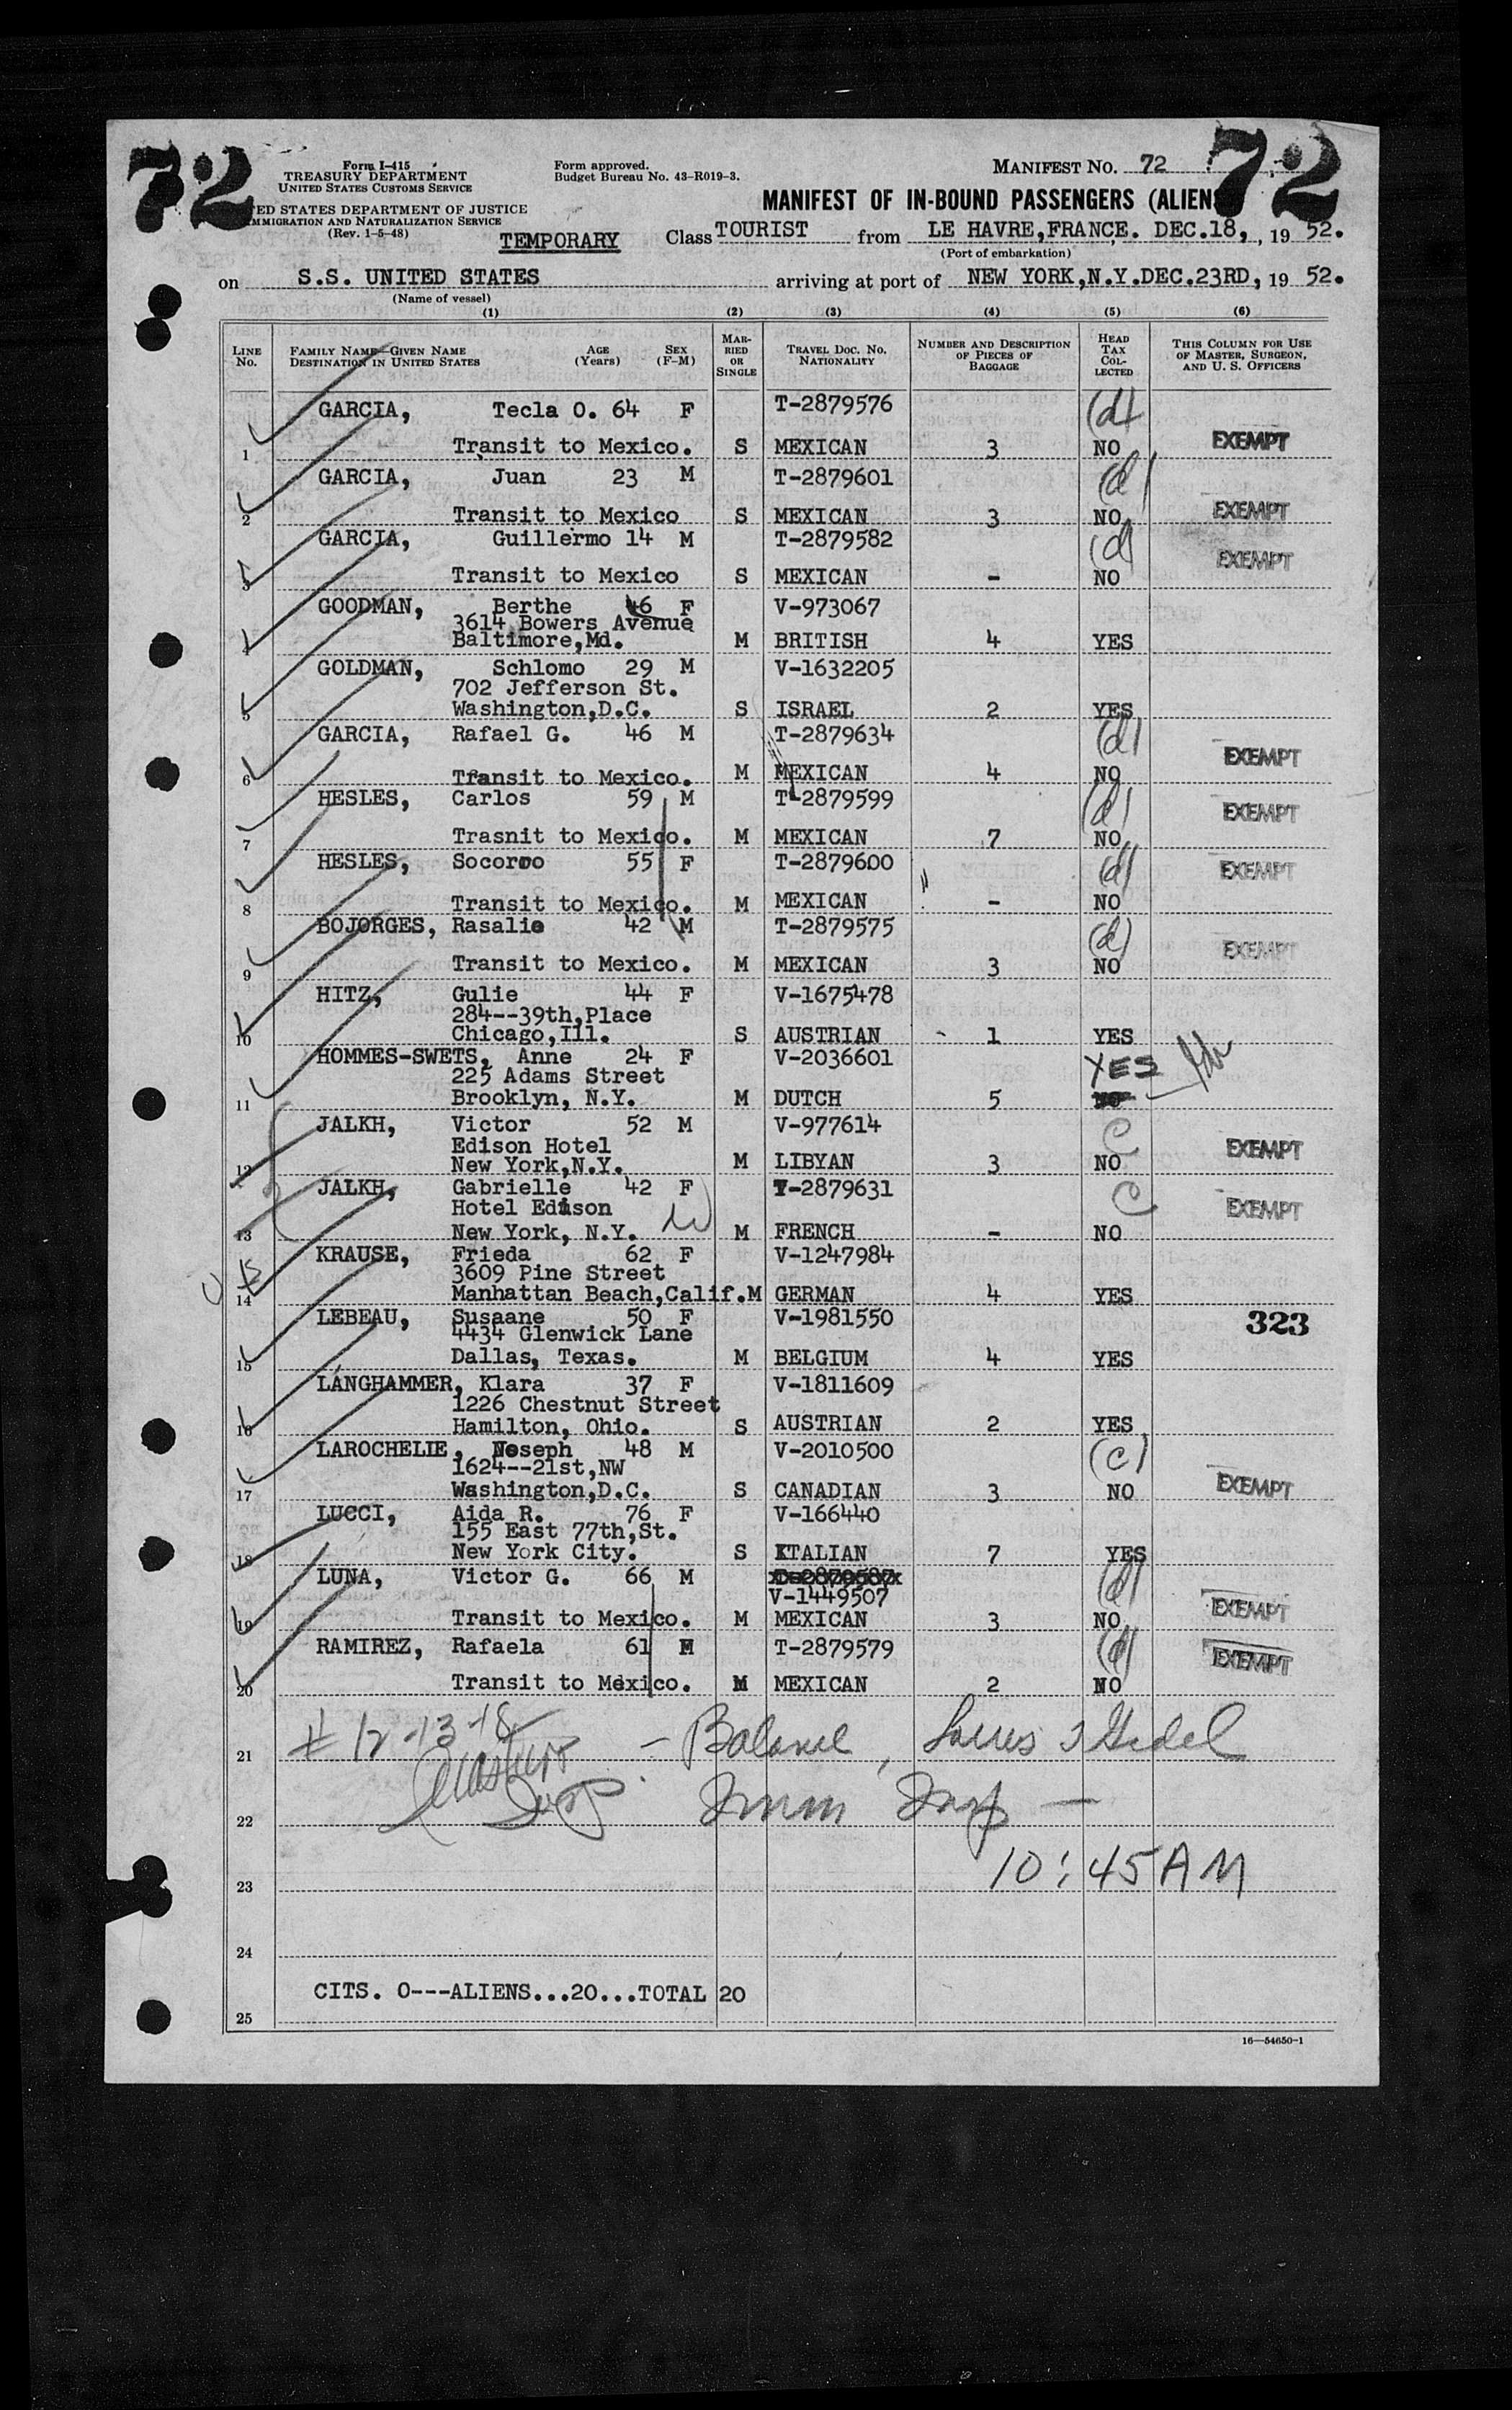 72
72
Form I-415
TREASURY DEPARTMENT
UNITED STATES CUSTOMS SERVICE
Form approved.
Budget Bureau No. 43-R019-3.
MANIFEST NO. 72
MANIFEST OF IN-BOUND PASSENGERS (ALIEN
TED STATES DEPARTMENT OF JUSTICE
IMMIGRATION AND NATURALIZATION SERVICE
(Rev. 1-5-48)
TEMPORARY Class TOURIST from LE HAVRE,FRANCE. DEC.18, , 19 52.
(Port of embarkation)
on S.S. UNITED STATES arriving at port of NEW YORK,N.Y.DEC.23RD, 19 52.
(Name of vessel)
(1) (2) (3) (4) (5) (6)
LINE No. FAMILY NAME—GIVEN NAME DESTINATION IN UNITED STATES AGE (Years) SEX (F-M) MARRIED OR SINGLE TRAVEL DOC. NO. NATIONALITY NUMBER AND DESCRIPTION OF PIECES OF BAGGAGE HEAD TAX COLLECTED THIS COLUMN FOR USE OF MASTER, SURGEON, AND U. S. OFFICERS
GARCIA, Tecla O. 64 F T-2879576 (d)
1 Transit to Mexico. S MEXICAN 3 NO EXEMPT
GARCIA, Juan 23 M T-2879601 (d)
2 Transit to Mexico S MEXICAN 3 NO EXEMPT
GARCIA, Guillermo 14 M T-2879582 (d)
3 Transit to Mexico S MEXICAN - NO EXEMPT
GOODMAN, Berthe 46 F V-973067
3614 Bowers Avenue
4 Baltimore,Md. M BRITISH 4 YES
GOLDMAN, Schlomo 29 M V-1632205
702 Jefferson St.
5 Washington,D.C. S ISRAEL 2 YES
GARCIA, Rafael G. 46 M T-2879634 (d)
6 Transit to Mexico. M MEXICAN 4 NO EXEMPT
HESLES, Carlos 59 M T-2879599 (d)
7 Trasnit to Mexico. M MEXICAN 7 NO EXEMPT
HESLES, Socorro 55 F T-2879600 (d)
8 Transit to Mexico. M MEXICAN - NO EXEMPT
BOJORGES, Rasalie 42 M T-2879575 (d)
9 Transit to Mexico. M MEXICAN 3 NO EXEMPT
HITZ, Gulie 44 F V-1675478
284--39th,Place
10 Chicago,Ill. S AUSTRIAN 1 YES
HOMMES-SWETS, Anne 24 F V-2036601 YES
225 Adams Street
11 Brooklyn, N.Y. M DUTCH 5 NO
JALKH, Victor 52 M V-977614 C
Edison Hotel
12 New York,N.Y. M LIBYAN 3 NO EXEMPT
JALKH, Gabrielle 42 F T-2879631 C
Hotel Edison
13 New York, N.Y. M FRENCH - NO EXEMPT
KRAUSE, Frieda 62 F V-1247984
3609 Pine Street
14 Manhattan Beach,Calif. M GERMAN 4 YES
LEBEAU, Susaane 50 F V-1981550 323
4434 Glenwick Lane
15 Dallas, Texas. M BELGIUM 4 YES
LANGHAMMER, Klara 37 F V-1811609
1226 Chestnut Street
16 Hamilton, Ohio. S AUSTRIAN 2 YES
LAROCHELIE, Noseph 48 M V-2010500 (c)
1624--21st,NW
17 Washington,D.C. S CANADIAN 3 NO EXEMPT
LUCCI, Aida R. 76 F V-166440
155 East 77th,St.
18 New York City. S ITALIAN 7 YES
LUNA, Victor G. 66 M T-2879587 (d)
V-1449507
19 Transit to Mexico. M MEXICAN 3 NO EXEMPT
RAMIREZ, Rafaela 61 M T-2879579 (d)
20 Transit to Mexico. M MEXICAN 2 NO EXEMPT
21 # 12-13-18 -
22 Imm Insp —
23 10:45 AM
24
CITS. 0---ALIENS...20...TOTAL 20
25
16—54650-1